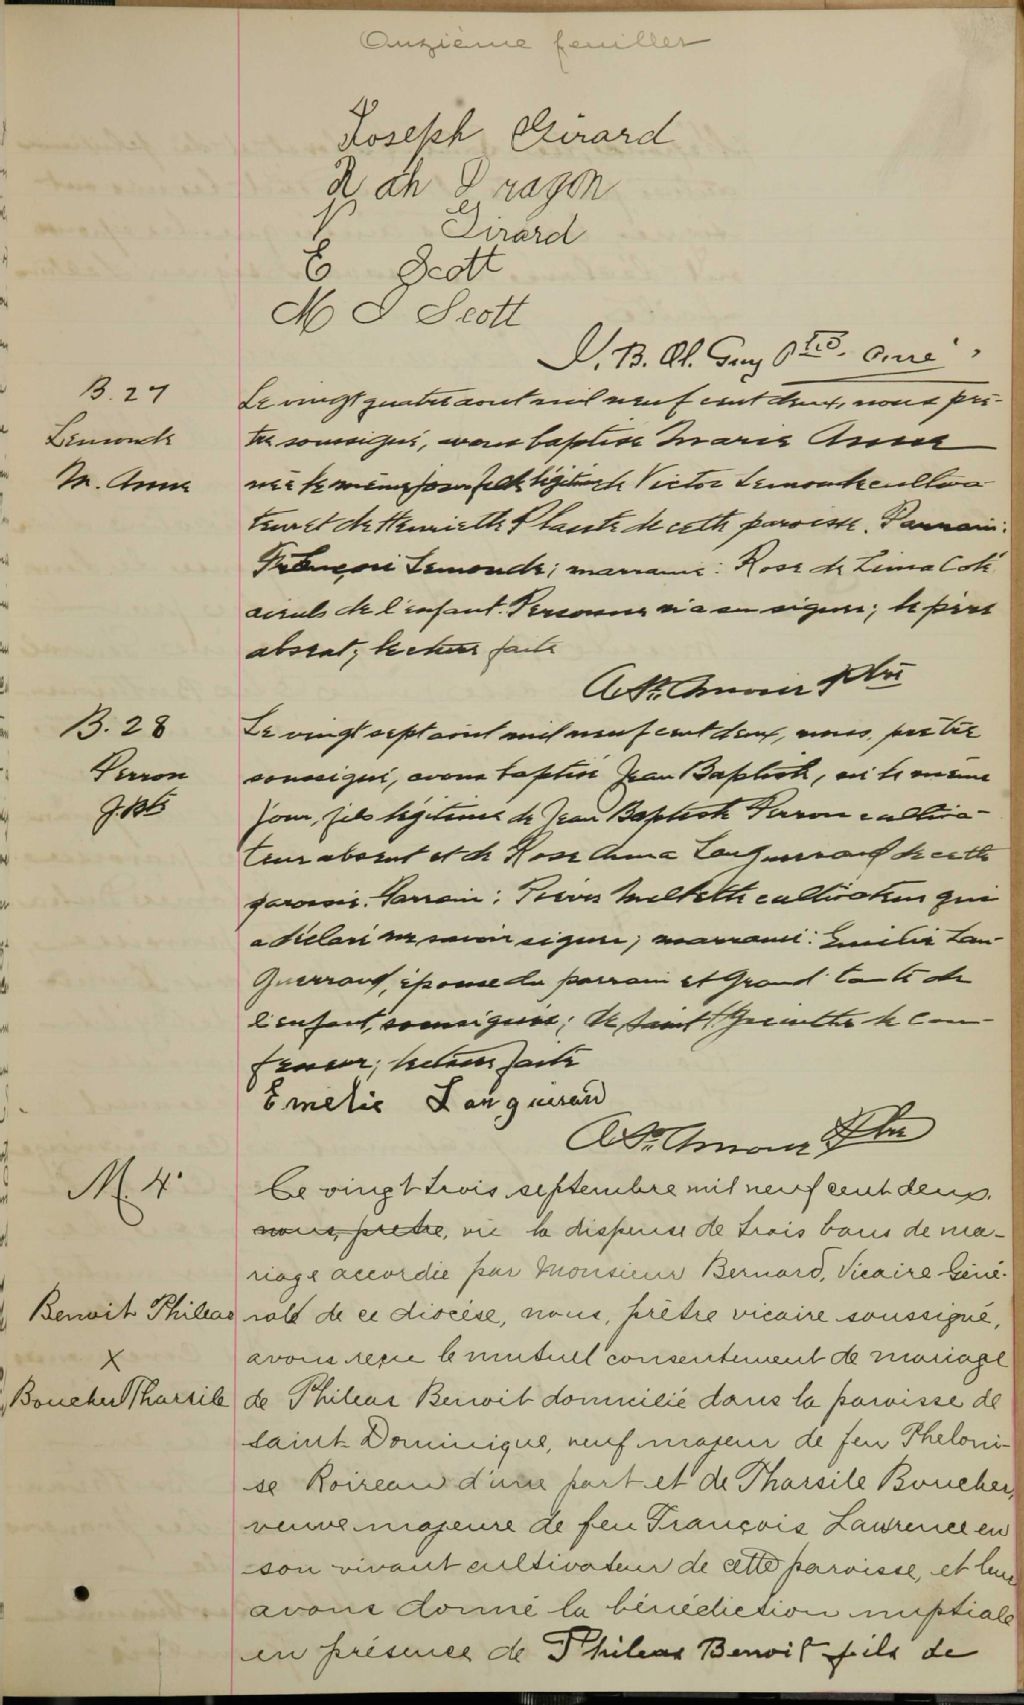 Onzième feuillet
Joseph Girard
R ah Dragon
V Girard
E Scott
M J Scott
J. B. Ol. Guy Ptre. Curé
B. 27
Lemonde
M. Anne
Le vingt quatre aout mil neuf cent deux, nous prê-
tre soussigné, avons baptisé Marie Anne
née le même jour fille légitime de Victor Lemonde cultiva-
teur et de Henriette Plante de cette paroisse. Parrain:
François Lemonde; marraine: Rose de Lima Coté
aieuls de l'enfant. Personne n'a su signer; le père
absent; lecture faite
A St. Amour Ptre
B. 28
Perron
J. Bte
Le vingt sept aout mil neuf cent deux, nous, prêtre
soussigné, avons baptisé Jean Baptiste, né le même
jour, fils légitime de Jean Baptiste Perron cultiva-
teur absent et de Rose Anna Languerrand de cette
paroisse. Parrain: Pierre cultivateur qui
a déclaré ne savoir signer; marraine: Emélie Lan-
guerrand, épouse du parrain et grand'tante de
l'enfant, soussignée; de Saint Hyacinthe le con-
fesseur; lecture faite
Emelie Languirand
A St. Amour Ptre
M. 4
Benoit Phileas
X
Boucher Tharsile
Le vingt trois septembre mil neuf cent deux,
nous, prêtre, vu la dispense de trois bans de ma-
riage accordée par Monsieur Bernard, Vicaire Géné-
rale de ce diocèse, nous, prêtre vicaire soussigné,
avons reçu le mutuel consentement de mariage
de Phileas Benoit domicilié dans la paroisse de
saint Dominique, veuf majeur de feu Pheloni-
se Roireau d'une part et de Tharsile Boucher,
veuve majeure de feu François Lawrence en
son vivant cultivateur de cette paroisse, et leur
avons donné la bénédiction nuptiale
en présence de Phileas Benoit fils de